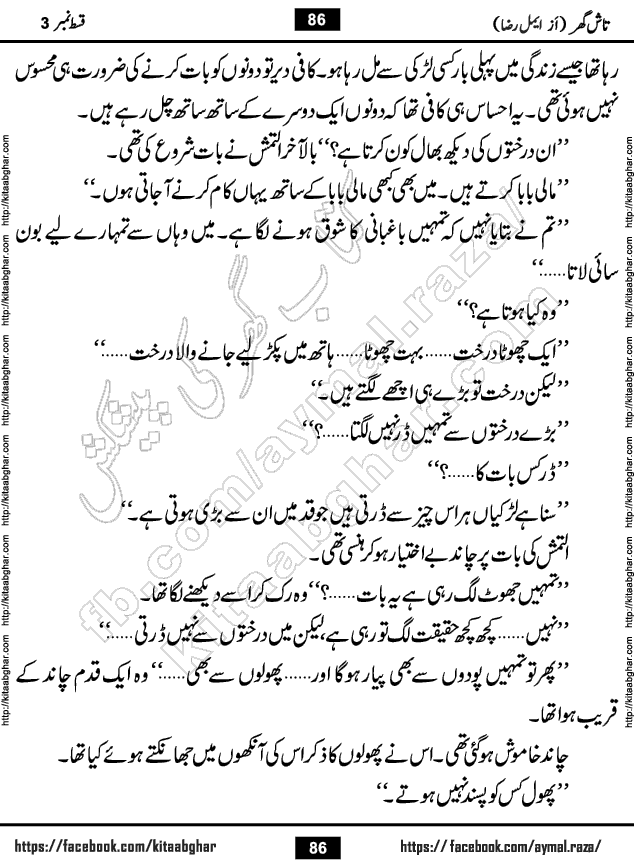 تاش گھر (از ایمل رضا) 86 قسط نمبر 3
رہا تھا جیسے زندگی میں پہلی بار کسی لڑکی سے مل رہا ہو۔ کافی دیر تو دونوں کو بات کرنے کی ضرورت ہی محسوس
نہیں ہوئی تھی۔ یہ احساس ہی کافی تھا کہ دونوں ایک دوسرے کے ساتھ ساتھ چل رہے ہیں۔
’’ان درختوں کی دیکھ بھال کون کرتا ہے؟‘‘ بالآخر التمش نے بات شروع کی تھی۔
’’مالی بابا کرتے ہیں۔ میں بھی کبھی کبھی مالی بابا کے ساتھ یہاں کام کرنے آجاتی ہوں۔‘‘
’’تم نے بتایا نہیں کہ تمہیں باغبانی کا شوق ہونے لگا ہے۔ میں وہاں سے تمہارے لیے بون
سائی لاتا......‘‘
’’وہ کیا ہوتا ہے؟‘‘
’’ایک چھوٹا درخت...... بہت چھوٹا...... ہاتھ میں پکڑ لیے جانے والا درخت......‘‘
’’لیکن درخت تو بڑے ہی اچھے لگتے ہیں۔‘‘
’’بڑے درختوں سے تمہیں ڈر نہیں لگتا......؟‘‘
’’ڈر کس بات کا......؟‘‘
’’سنا ہے لڑکیاں ہر اس چیز سے ڈرتی ہیں جو قد میں ان سے بڑی ہوتی ہے۔‘‘
التمش کی بات پر چاند بے اختیار ہو کر ہنسی تھی۔
’’تمہیں جھوٹ لگ رہی ہے یہ بات......؟‘‘ وہ رک کر اسے دیکھنے لگا تھا۔
’’نہیں...... کچھ کچھ حقیقت لگ تو رہی ہے، لیکن میں درختوں سے نہیں ڈرتی......‘‘
’’پھر تو تمہیں پودوں سے بھی پیار ہوگا اور...... پھولوں سے بھی......‘‘ وہ ایک قدم چاند کے
قریب ہوا تھا۔
چاند خاموش ہوگئی تھی۔ اس نے پھولوں کا ذکر اس کی آنکھوں میں جھانکتے ہوئے کیا تھا۔
’’پھول کس کو پسند نہیں ہوتے۔‘‘
کتاب گھر کی پیشکش
fb.com/aymal.raza/
kitaabghar.com
http://kitaabghar.com http://kitaabghar.com http://kitaabghar.com http://kitaabghar.com http://kitaabghar.com http://kitaabghar.com
http://kitaabghar.com http://kitaabghar.com http://kitaabghar.com http://kitaabghar.com http://kitaabghar.com http://kitaabghar.com
https://facebook.com/kitaabghar 86 https://facebook.com/aymal.raza/